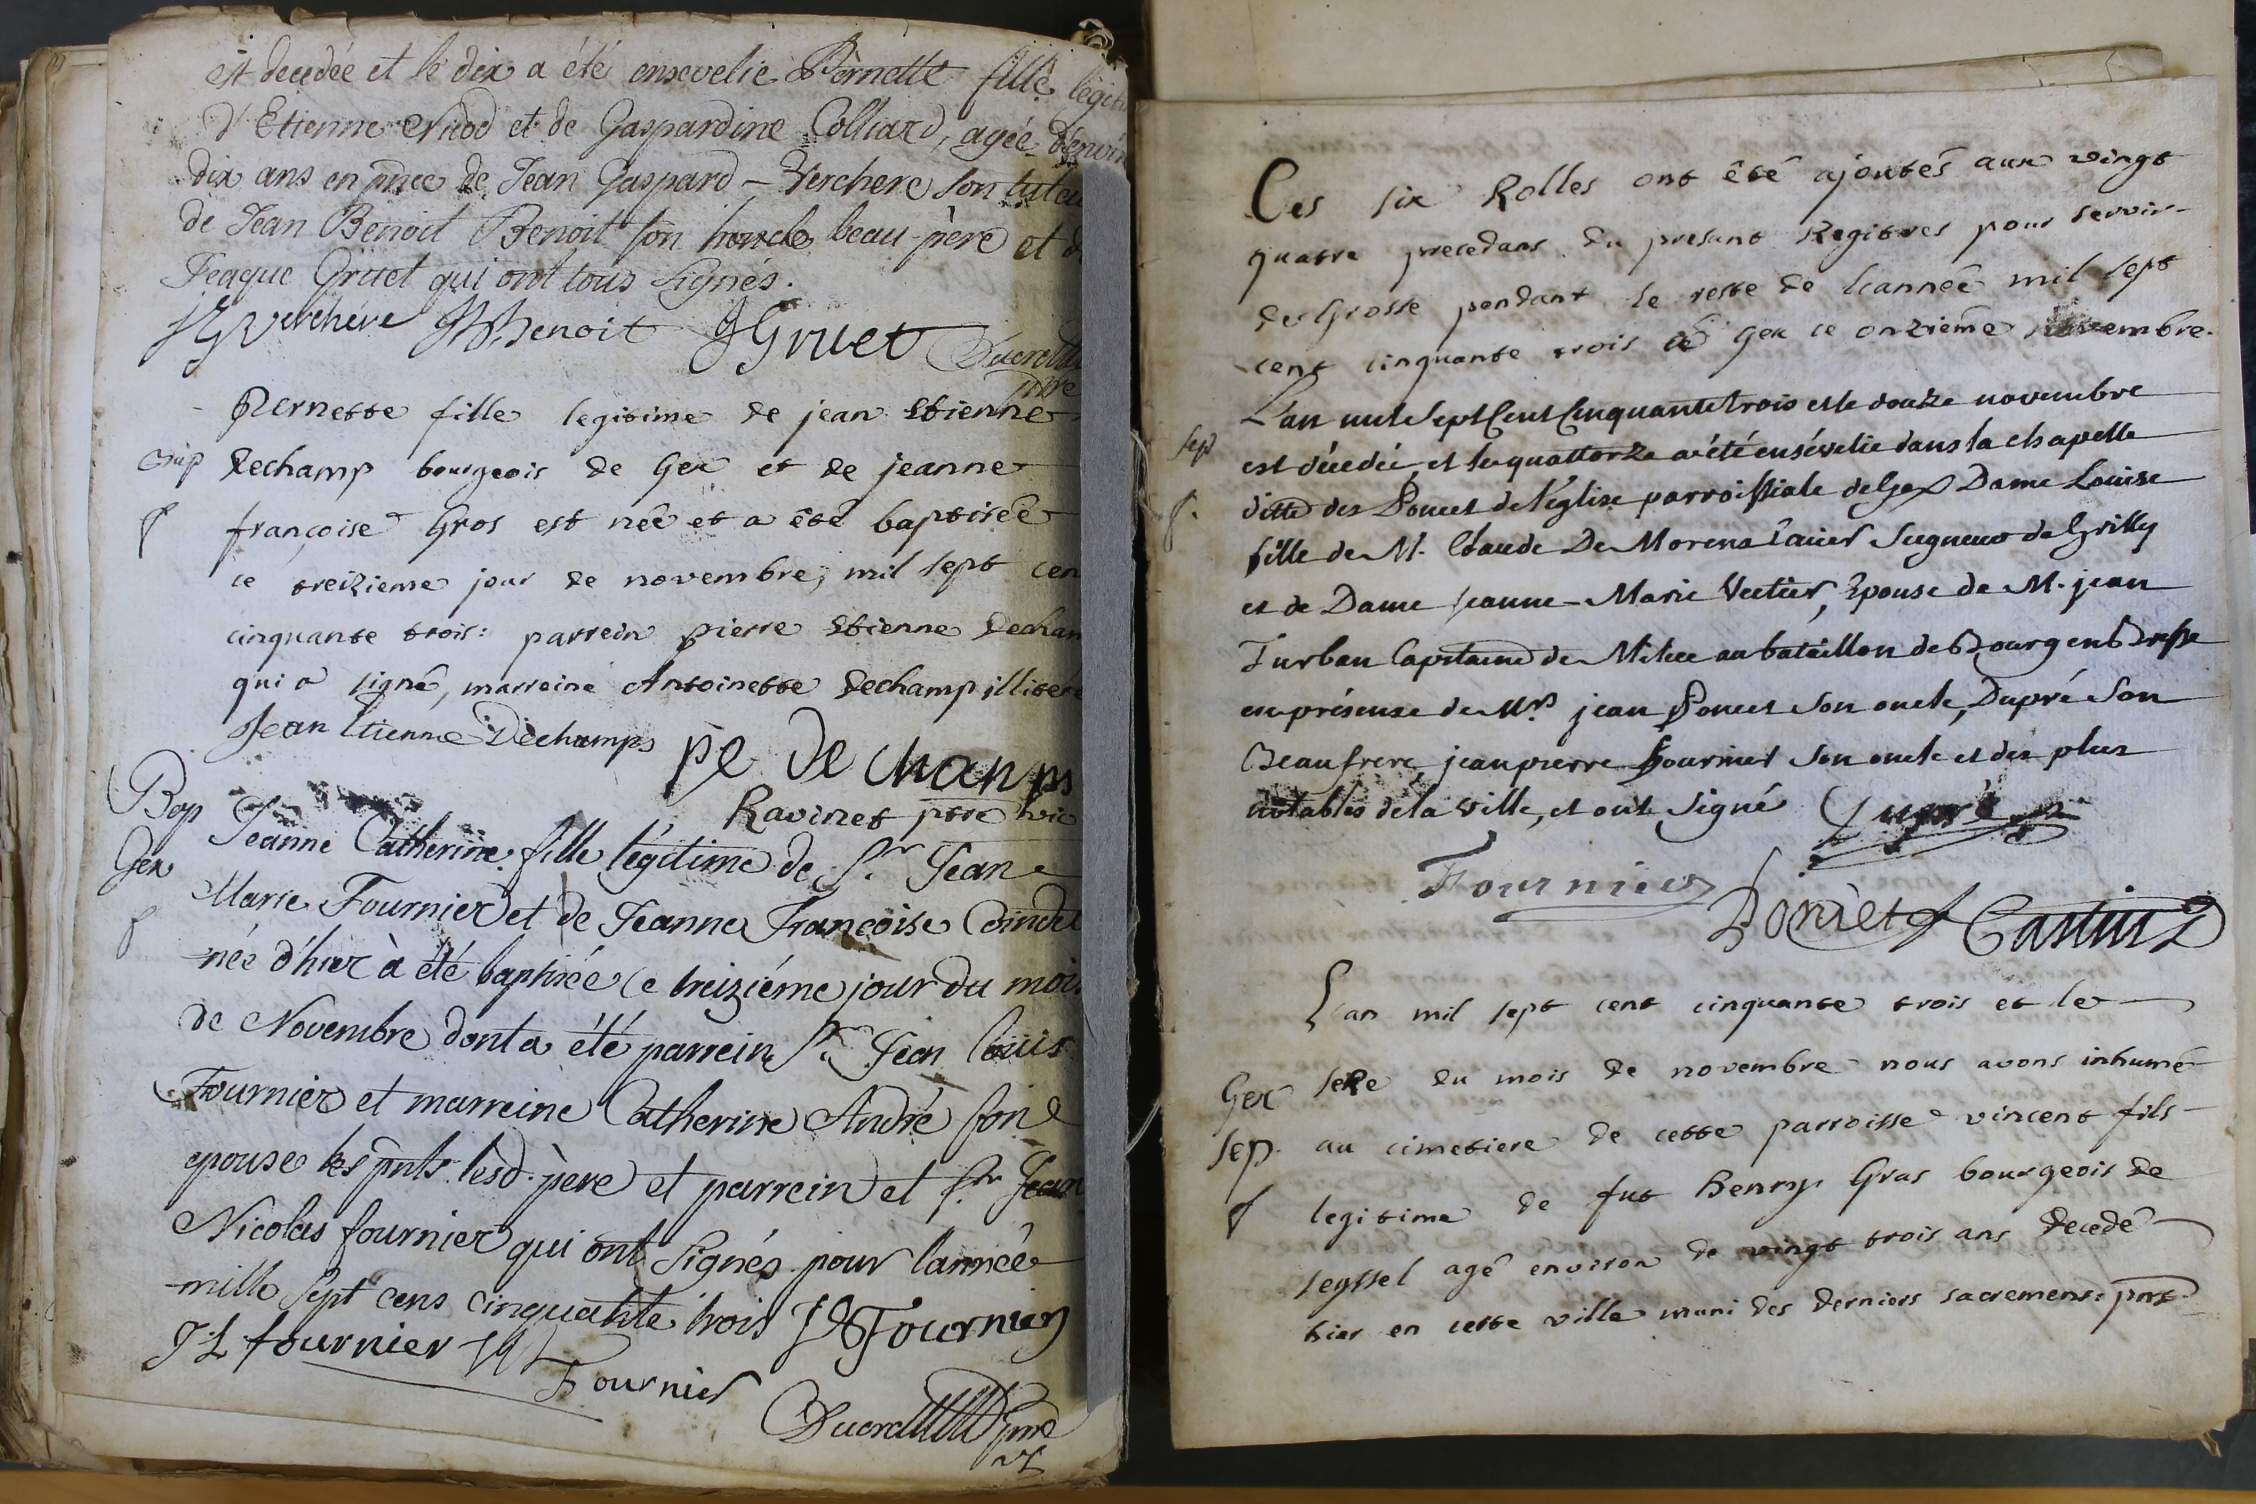 est decedée et le dix a été ensevelie Pernette fille légit
d'Etienne Nicod et de Gaspardine Colliard, agée d'envir
dix ans en pnce de Jean Gaspard Verchere son tuteu
de Jean Benoit Benoit son beau-père et d
Jeaque Gruet qui ont tous signés.
JGVerchére JBBenoit JGruet
Pernette fille legitime de jean Etienne
Bap dechamp bourgeois de Gex et de jeanne
f françoise Gros est née et a êté baptisée
ce treizieme jour de novembre, mil sept cen
cinquante trois: parrein pierre Etienne decham
qui a signé, marreine Antoinette dechamp illitére
Jean Etienne Dechamps pe De cham ps
Ravinet ptre vic
Bap Jeanne Catherine fille légitime de Sr. Jean
Gex Marie Fournier et de Jeanne Françoise Coindet
f née d'hier à été baptisée ce treiziéme jour du mois
de Novembre dont a été parrein Sr. Jean louis
Fournier et marreine Catherine André son
epouse les pnts lesd. père et parrein et Sr. Jean
Nicolas fournier qui ont signés pour l'année
mille sept cens cinquante trois JNFournier
JL fournier
Fournier
Ces six Rolles ont êté ajoutés aux vingt
quatre precedans du presant Regitres pour servir
de Grosse pendant le reste de l'année mil sept
cent cinquante trois a Gex ce onzième novembre.
L'an mil sept Cent Cinquante trois et le douze novembre
sep est décedée, et le quattorze a été ensévelie dans la chapelle
f. ditte des Poncet de l'église parroissiale de Gex Dame Louise
fille de M. Claude De Morena Seigneur de Grilly
et de Dame Jeanne-Marie Vectier, Epouse de M. jean
Turban Capitaine de Milice au bataillon de Bourg en Bresse
en présense de Mrs jean Poncet son oncle, Dupré son
Beaufrere, jean pierre fournier son oncle et des plus
notables de la ville, et ont signé Dupré
Fournier Poncet Castin
L'an mil sept cent cinquante trois et le
Gex seze du mois de novembre nous avons inhumé
sep. au cimetiere de cette parroisse vincent fils
f legitime de fut henry Gras bourgeois de
seyssel agé environ de vingt trois ans decedé
hier en cette ville muni des derniers sacremens: pnt